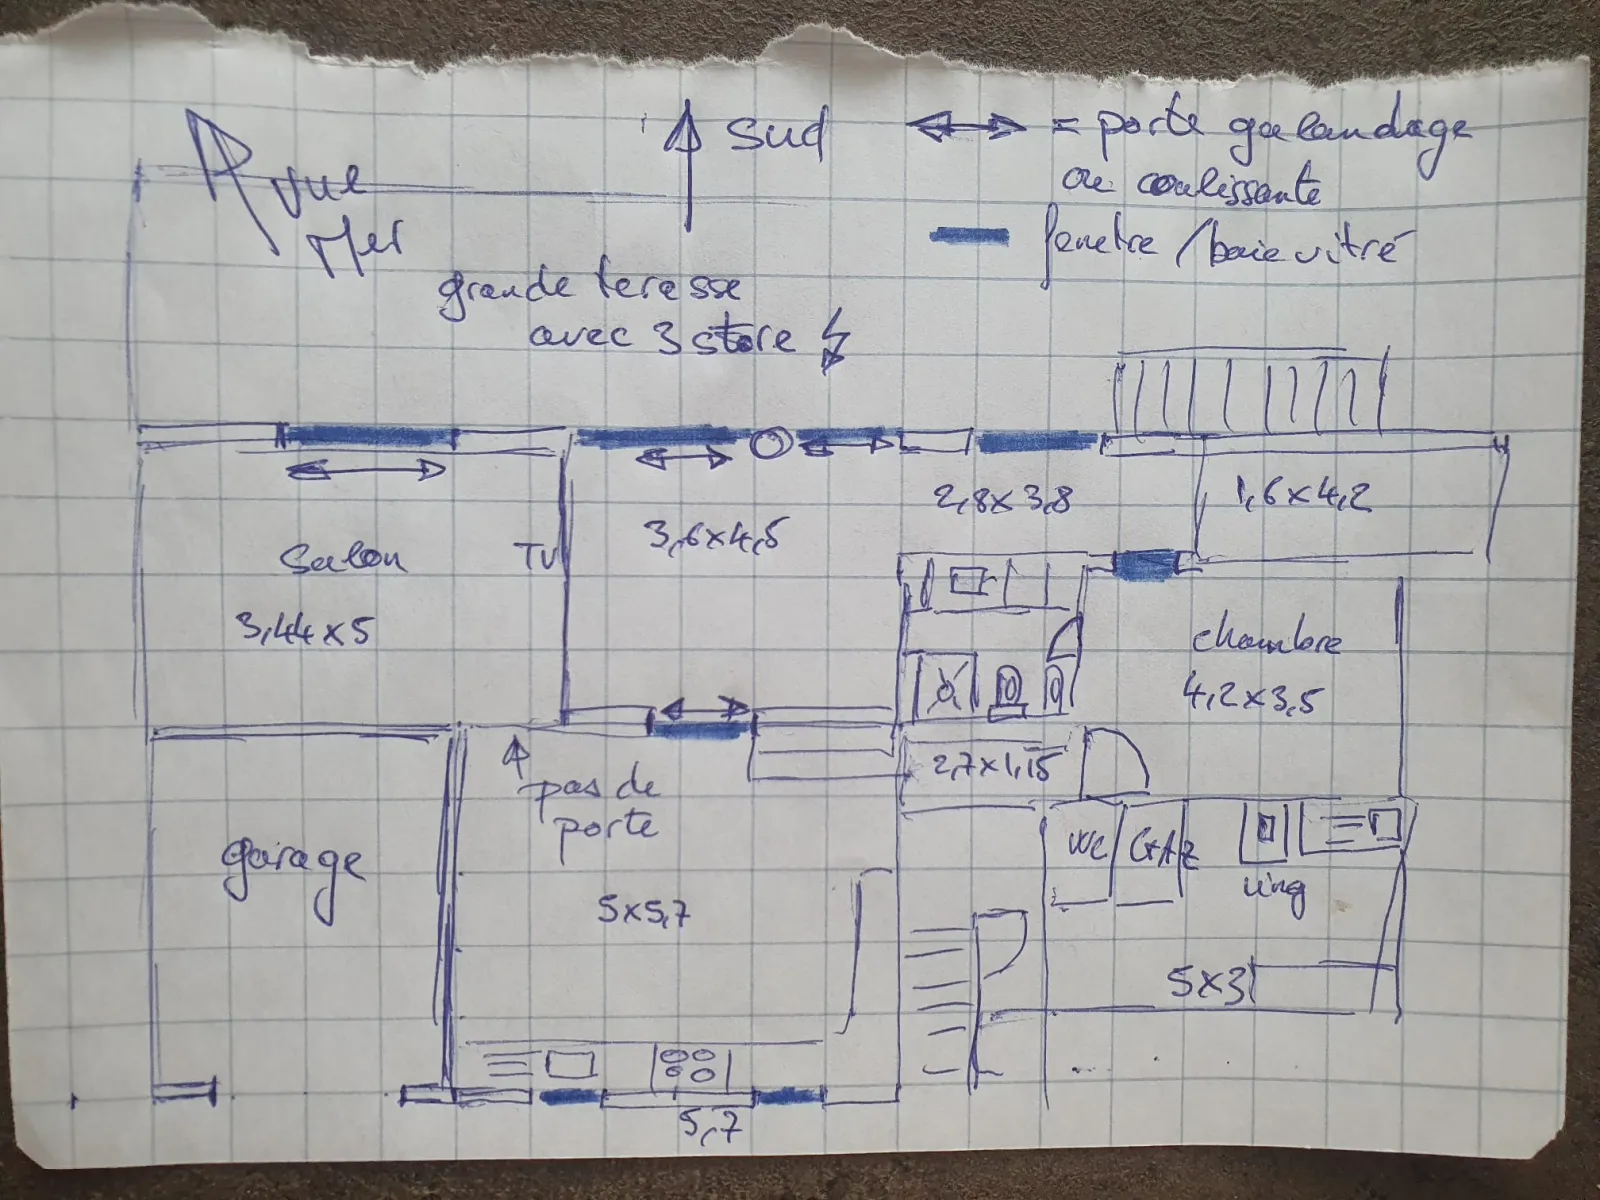 sud
= porte galandage
ou coulissante
fenetre / baie vitré
vue
Mer
grande terasse
avec 3 store
2,8 x 3,8
1,6 x 4,2
3,6 x 4,5
Salon
TV
3,44 x 5
chambre
4,2 x 3,5
2,7 x 1,15
pas de
porte
garage
WC
GAZ
5 x 5,7
ling
5 x 3
5,7